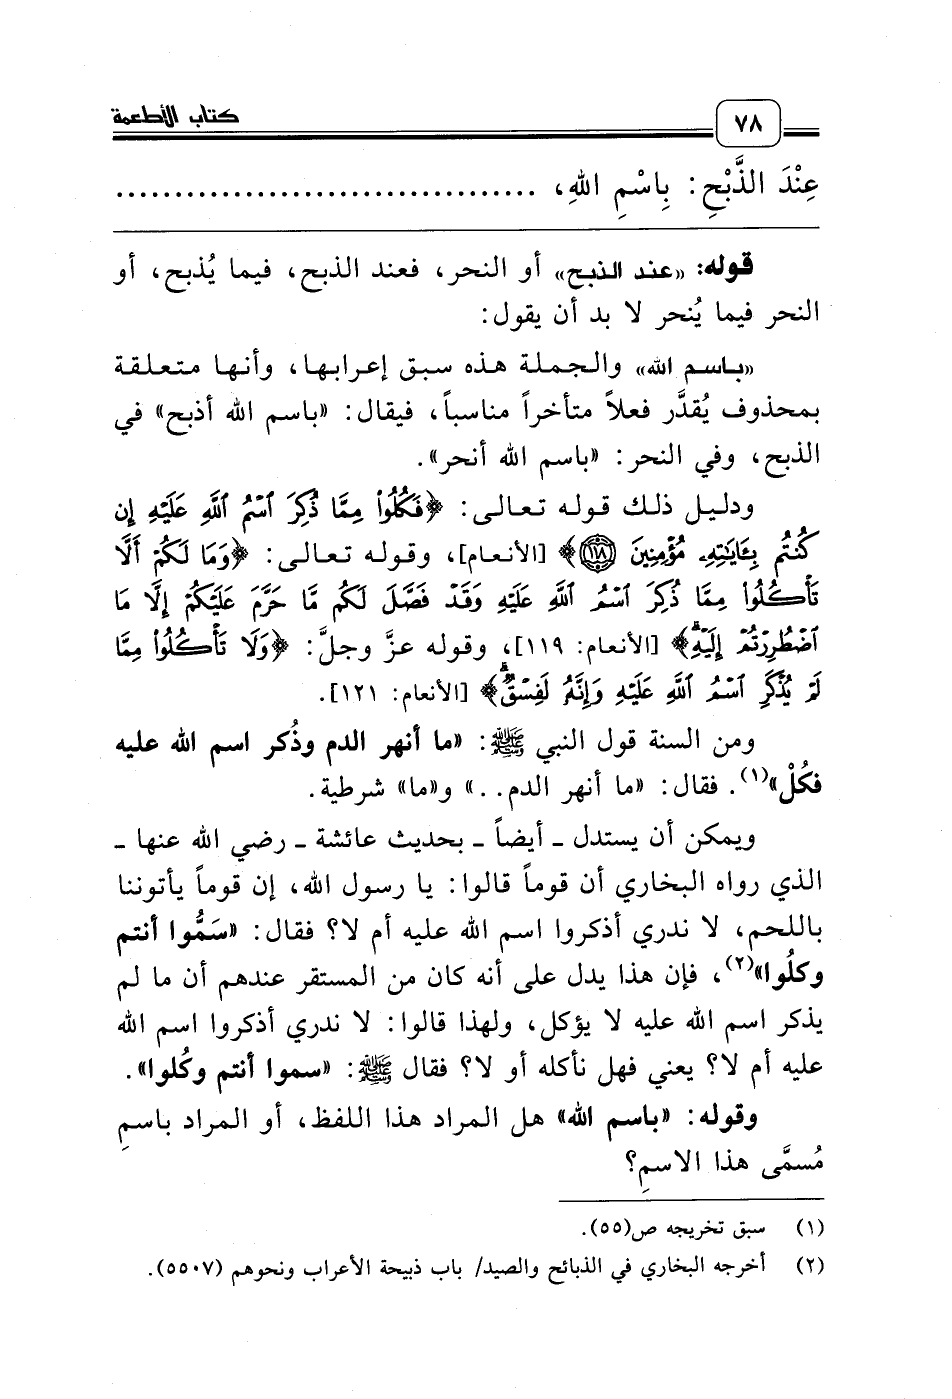 كتاب الأطعمة
٧٨
عِنْدَ الذَّبْحِ: بِاسْمِ اللهِ، ....................................
قوله: «عند الذبح» أو النحر، فعند الذبح، فيما يُذبح، أو
النحر فيما يُنحر لا بد أن يقول:
«باسم الله» والجملة هذه سبق إعرابها، وأنها متعلقة
بمحذوف يُقدَّر فعلاً متأخراً مناسباً، فيقال: «باسم الله أذبح» في
الذبح، وفي النحر: «باسم الله أنحر».
ودليل ذلك قوله تعالى: ﴿فَكُلُواْ مِمَّا ذُكِرَ ٱسۡمُ ٱللَّهِ عَلَيۡهِ إِن
كُنتُم بِـَٔايَٰتِهِۦ مُؤۡمِنِينَ ١١٨﴾ [الأنعام]، وقوله تعالى: ﴿وَمَا لَكُمۡ أَلَّا
تَأۡكُلُواْ مِمَّا ذُكِرَ ٱسۡمُ ٱللَّهِ عَلَيۡهِ وَقَدۡ فَصَّلَ لَكُم مَّا حَرَّمَ عَلَيۡكُمۡ إِلَّا مَا
ٱضۡطُرِرۡتُمۡ إِلَيۡهِۗ﴾ [الأنعام: ١١٩]، وقوله عزَّ وجلَّ: ﴿وَلَا تَأۡكُلُواْ مِمَّا
لَمۡ يُذۡكَرِ ٱسۡمُ ٱللَّهِ عَلَيۡهِ وَإِنَّهُۥ لَفِسۡقٞۗ﴾ [الأنعام: ١٢١].
ومن السنة قول النبي ﷺ: «ما أنهر الدم وذُكر اسم الله عليه
فكُلْ»(١). فقال: «ما أنهر الدم..» و«ما» شرطية.
ويمكن أن يستدل ـ أيضاً ـ بحديث عائشة ـ رضي الله عنها ـ
الذي رواه البخاري أن قوماً قالوا: يا رسول الله، إن قوماً يأتوننا
باللحم، لا ندري أذكروا اسم الله عليه أم لا؟ فقال: «سَمُّوا أنتم
وكلُوا»(٢)، فإن هذا يدل على أنه كان من المستقر عندهم أن ما لم
يذكر اسم الله عليه لا يؤكل، ولهذا قالوا: لا ندري أذكروا اسم الله
عليه أم لا؟ يعني فهل نأكله أو لا؟ فقال ﷺ: «سموا أنتم وكُلوا».
وقوله: «باسم الله» هل المراد هذا اللفظ، أو المراد باسمِ
مُسمَّى هذا الاسمِ؟
(١) سبق تخريجه ص(٥٥).
(٢) أخرجه البخاري في الذبائح والصيد/ باب ذبيحة الأعراب ونحوهم (٥٥٠٧).